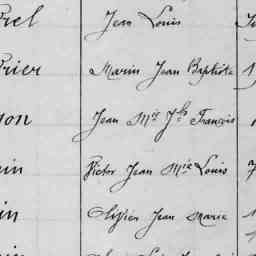 rel Jean Louis
rier Marin Jean Baptiste
on Jean Mie Jh François
in Victor Jean Mie Louis
in Jean Marie